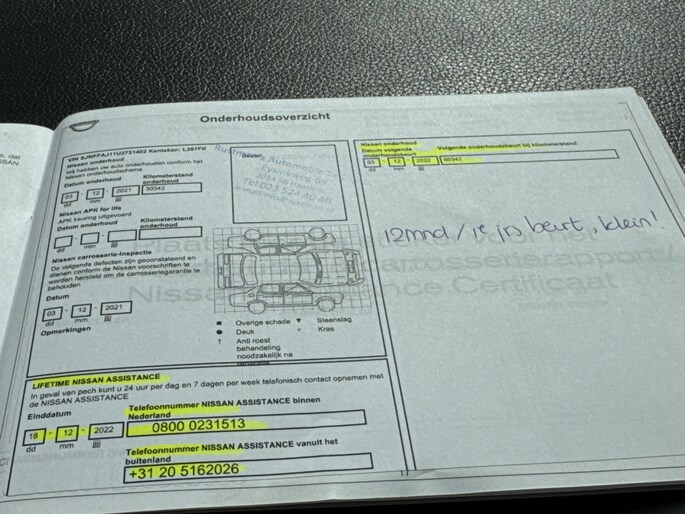 Onderhoudsoverzicht
VIN SJNFFAJ11U2731402 Kenteken: L397FK
Nissan onderhoud
Wij hebben uw auto onderhouden conform het
Nissan onderhoudschema
Datum onderhoud
Kilometerstand
onderhoud
03 - 12 - 2021
30342
dd mm jjjj
Nissan APK for life
APK keuring uitgevoerd
Datum onderhoud
Kilometerstand
onderhoud
dd mm jjjj
Nissan carrosserie-inspectie
De volgende defecten zijn geconstateerd en
dienen conform de Nissan voorschriften te
worden hersteld om de carrosseriegarantie te
behouden
Datum
03 - 12 - 2021
dd mm jjjj
Opmerkingen
Dealer
Tel 023 524 40 46
Overige schade
Steenslag
Deuk
Kras
Anti roest
behandeling
noodzakelijk na
LIFETIME NISSAN ASSISTANCE
In geval van pech kunt u 24 uur per dag en 7 dagen per week telefonisch contact opnemen met
de NISSAN ASSISTANCE
Einddatum
18 - 12 - 2022
dd mm jjjj
Telefoonnummer NISSAN ASSISTANCE binnen
Nederland
0800 0231513
Telefoonnummer NISSAN ASSISTANCE vanuit het
buitenland
+31 20 5162026
Nissan onderhoud
Datum volgende
onderhoudsbeurt
Volgende onderhoudsbeurt bij kilometerstand
03 - 12 - 2022
60342
dd mm jjjj
12mnd / 1e jrs beurt, klein!